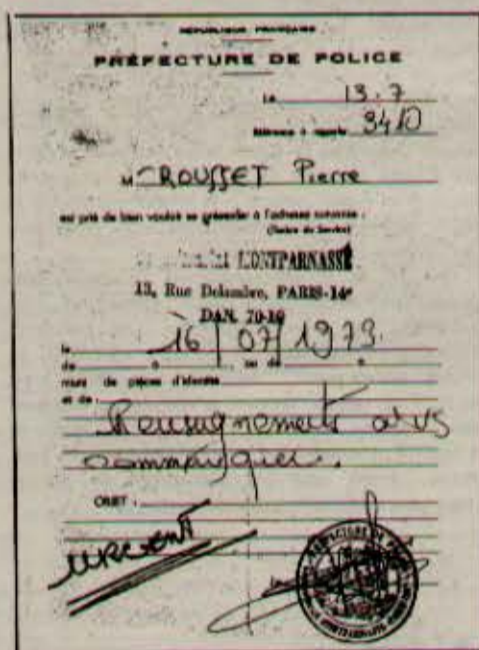 RÉPUBLIQUE FRANÇAISE
PRÉFECTURE DE POLICE
Le 13.7
Référence à rappeler 3410
M ROUSSET Pierre
est prié de bien vouloir se présenter à l'adresse suivante :
(Timbre du Service)
MONTPARNASSE
13, Rue Delambre, PARIS-14e
DAN. 70-10
le 16/07/1973
de à ou de à
muni de pièces d'identité
et de :
Renseignements à vs
communiquer.
OBJET :
URGENT
PRÉFECTURE DE POLICE